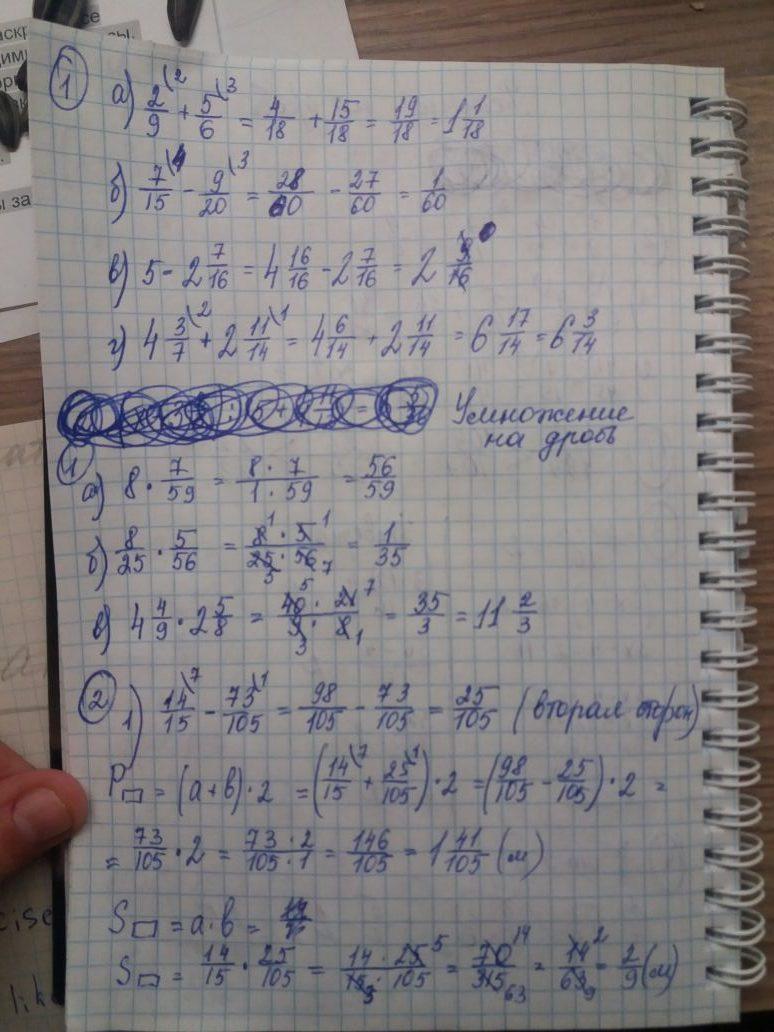 аскр все
дим сы.
ы за
1 а) 2/9 \2 + 5/6 \3 = 4/18 + 15/18 = 19/18 = 1 1/18
б) 7/15 \4 - 9/20 \3 = 28/60 - 27/60 = 1/60
в) 5 - 2 7/16 = 4 16/16 - 2 7/16 = 2 9/16
г) 4 3/7 \2 + 2 11/14 \1 = 4 6/14 + 2 11/14 = 6 17/14 = 6 3/14
Умножение
на дробь
4
а) 8 · 7/59 = 8 · 7/1 · 59 = 56/59
б) 8/25 · 5/56 = 8 1 · 5 1/25 5 · 56 7 = 1/35
в) 4 4/9 · 2 5/8 = 40 5 · 21 7/9 3 · 8 1 = 35/3 = 11 2/3
2 1) 14/15 \7 - 73/105 \1 = 98/105 - 73/105 = 25/105 (вторая сторон)
P▭ = (а+в) · 2 = (14/15 \7 + 25/105 \1) · 2 = (98/105 - 25/105) · 2 =
= 73/105 · 2 = 73 · 2/105 · 1 = 146/105 = 1 41/105 (м)
S▭ = а · в =
S▭ = 14/15 · 25/105 = 14 · 25 5/15 3 · 105 = 70 14/315 63 = 14 2/63 9 = 2/9 (м)
cise
lik